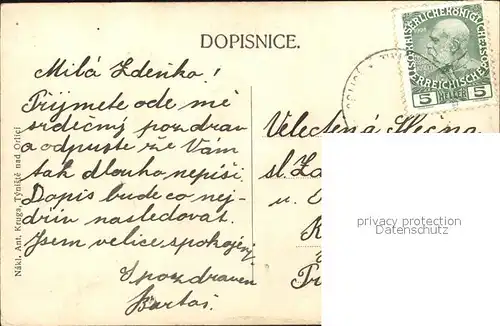 DOPISNICE.
KAISERLICHE KÖNIGLICHE
ÖSTERREICHISCHE
5 HELLER 5
Milá Zdeňko!
Přijmete ode mě
srdečný pozdrav
a odpusťte že Vám
tak dlouho nepíši.
Dopis bude co nej-
dřív následovat.
Jsem velice spokojený
S pozdravem
Bartoš.
Velectěná Slečna
sl. Z
u.
Nákl. Ant. Kruga, Týniště nad Orlicí
privacy protection
Datenschutz